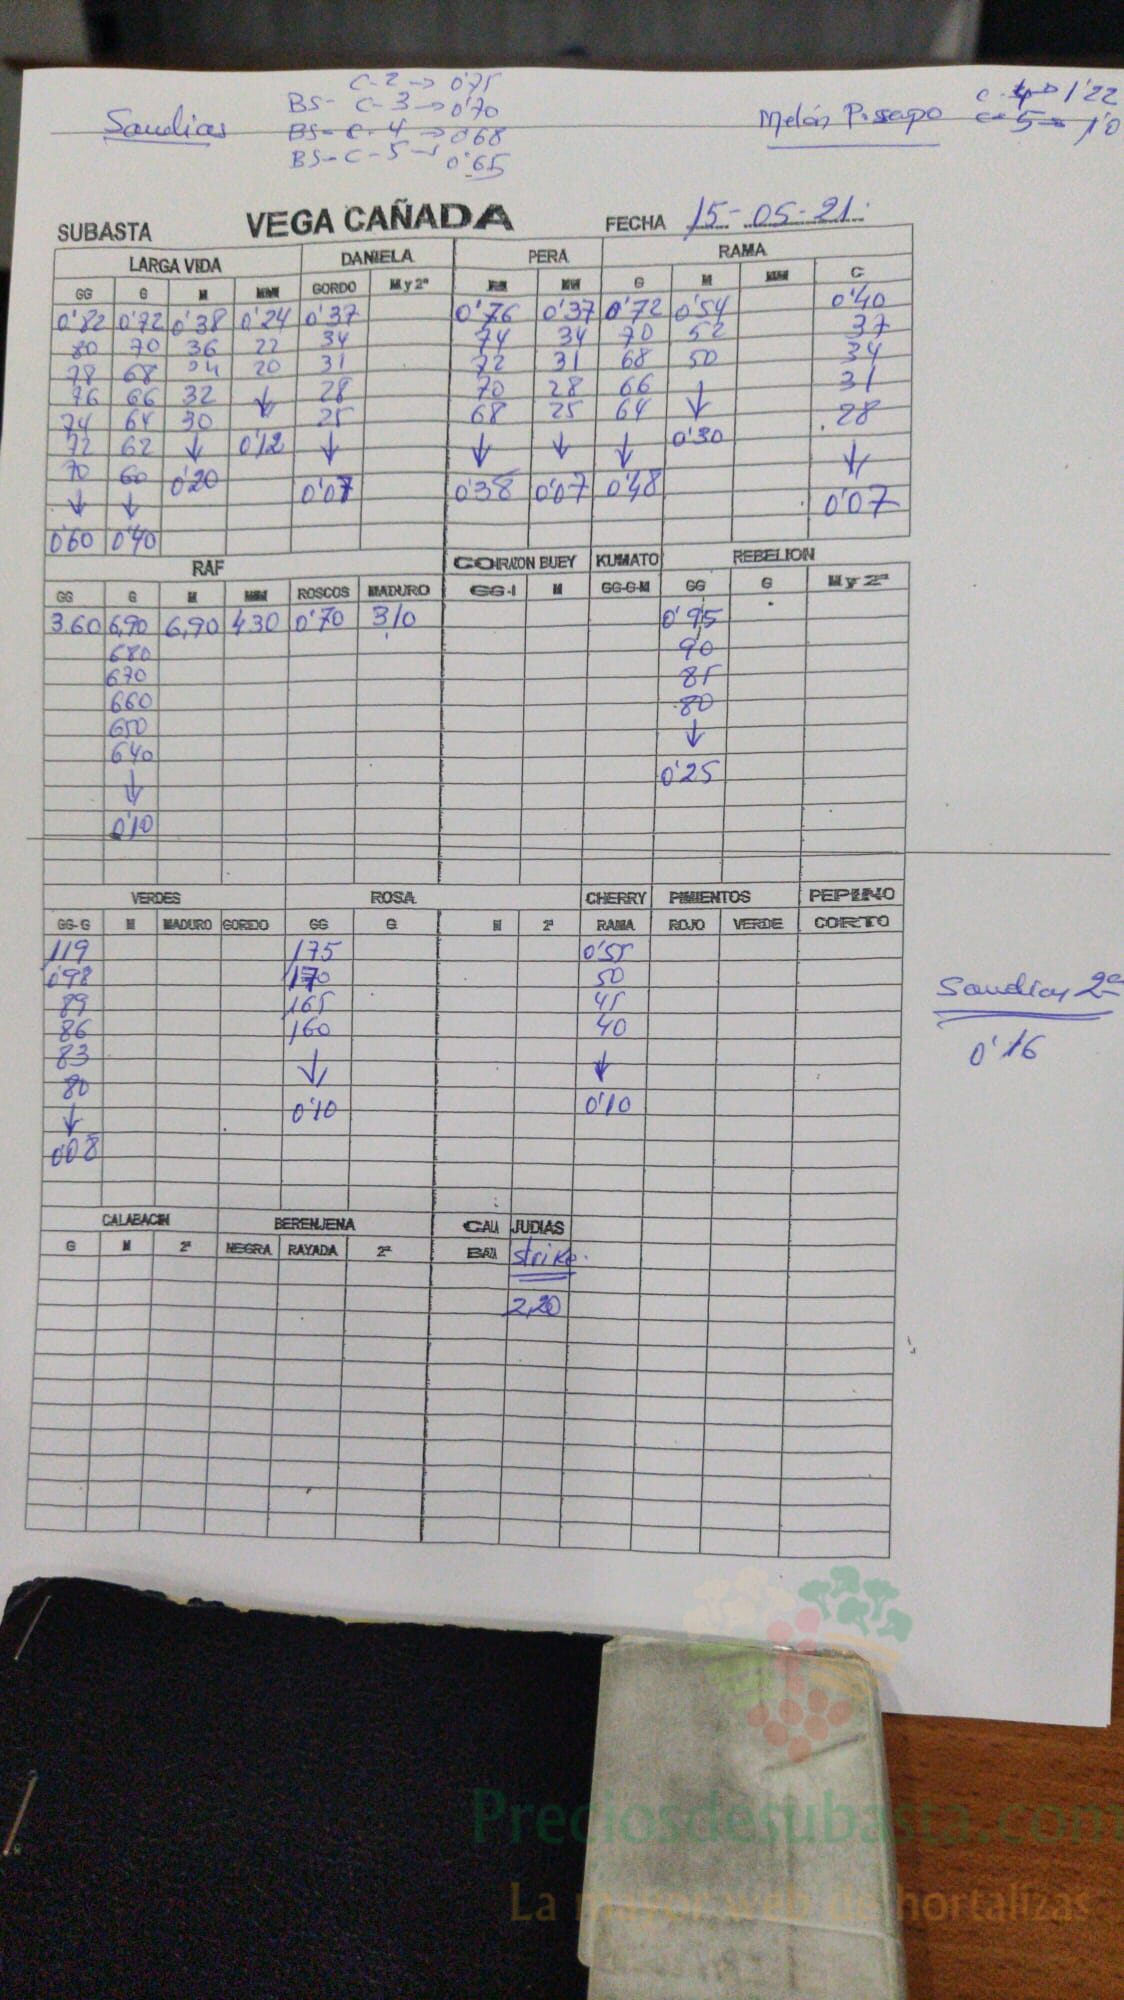 Sandias
C-2 → 0'75
BS- C-3 → 0'70
BS- C-4 → 0'68
BS- C-5 → 0'65
Melón P. sapo C-4 → 1'22
C-5 → 1'0
SUBASTA VEGA CAÑADA FECHA 15-05-21.
LARGA VIDA DANIELA PERA RAMA
GG G M MM GORDO M y 2ª MM G M MM C
0'82 0'72 0'38 0'24 0'37 0'76 0'37 0'72 0'54 0'40
80 70 36 22 34 74 34 70 52 37
78 68 34 20 31 72 31 68 50 34
76 66 32 ↓ 28 70 28 66 ↓ 31
74 64 30 25 68 25 64 28
72 62 ↓ 0'12 ↓ ↓ ↓ ↓ 0'30 ↓
70 60 0'20 0'07 0'38 0'07 0'48 0'07
↓ ↓
0'60 0'40
RAF CORAZON BUEY KUMATO REBELION
GG G M MM ROSCOS MADURO GG-I M GG-G-M GG G M y 2ª
3.60 6,90 6,90 430 0'70 310 0'95
680 90
670 85
660 80
650 ↓
640 0'25
↓
0'10
VERDES ROSA CHERRY PIMIENTOS PEPINO
GG-G M MADURO GORDO GG G M 2ª RAMA ROJO VERDE CORTO
119 175 0'55
0'98 170 50
89 165 45
86 160 40
83 ↓ ↓
80 0'10 0'10
↓
0'08
Sandias 2ª
0'16
CALABACIN BERENJENA CALA JUDIAS
G M 2ª NEGRA RAYADA 2ª BAZA strike.
2,20
Preciosdesubasta.com
La mayor web de hortalizas